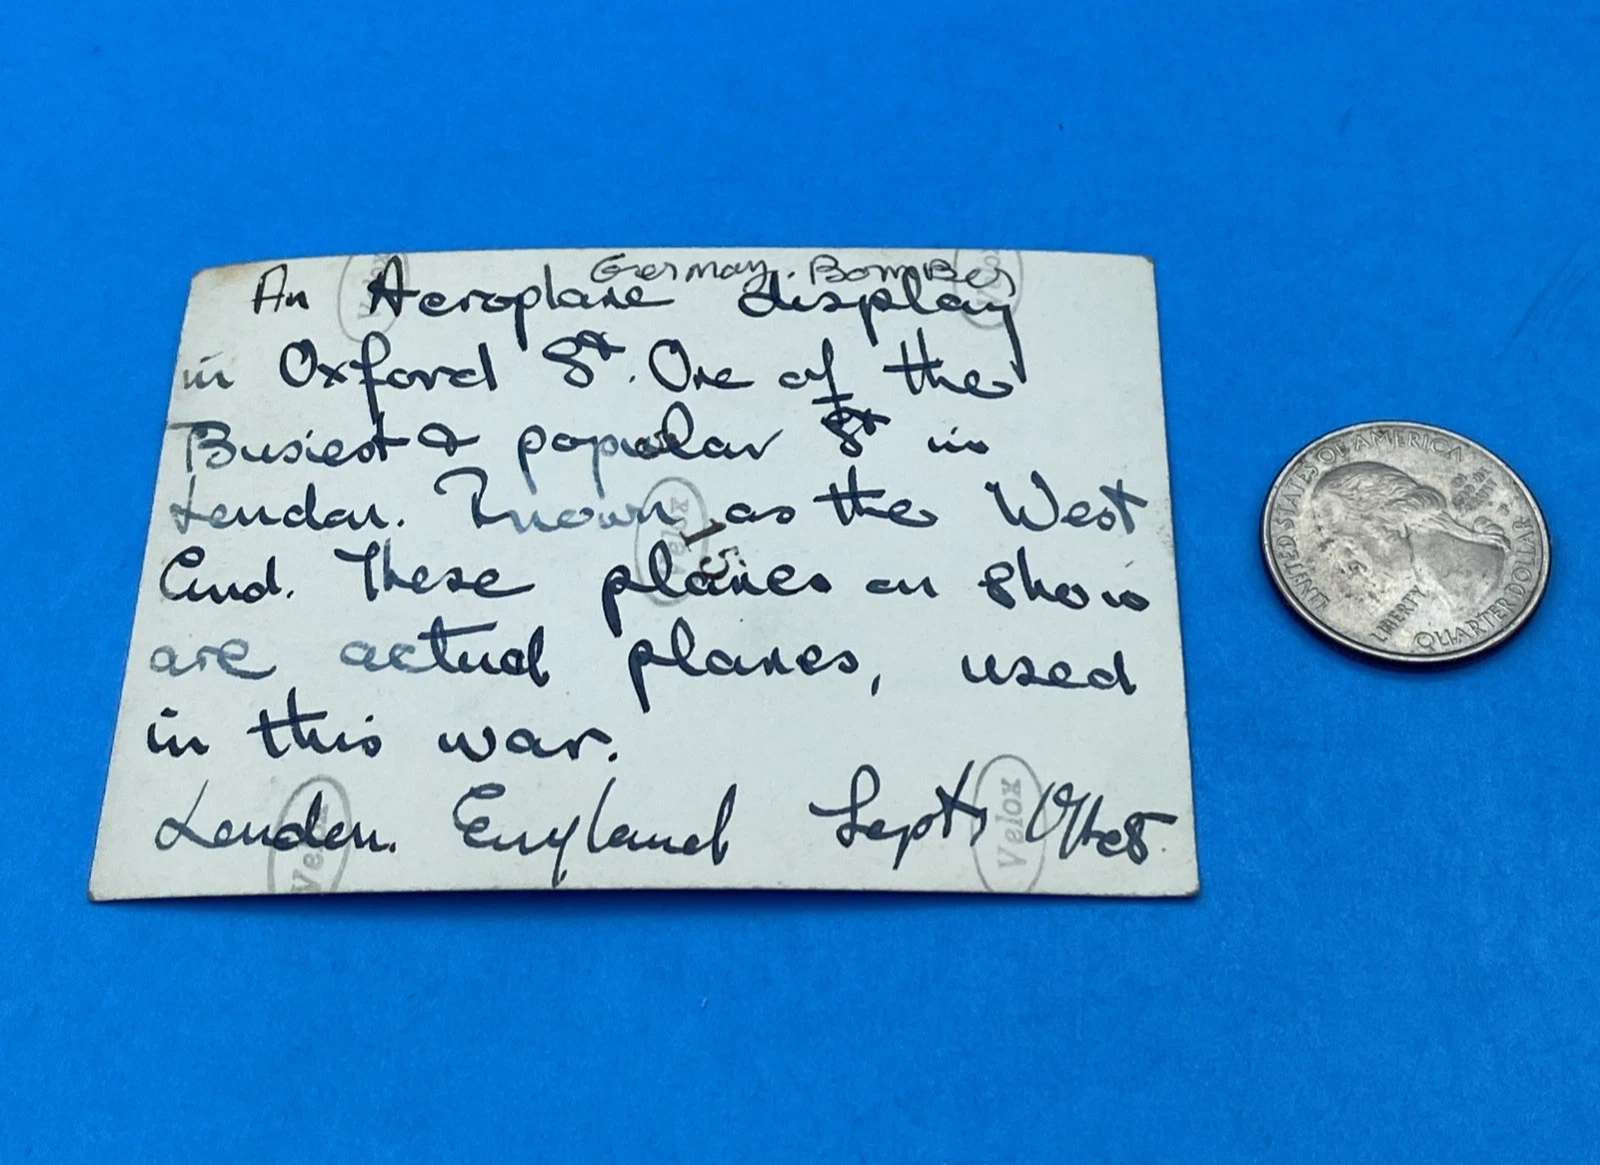 Germany. Bomber
An Aeroplane display
in Oxford St. One of the
Busiest & popular St in
London. Known as the West
End. These planes on show
are actual planes, used
in this war.
London. England Sept, 1945.
Velox
Velox
Velox
Velox
Velox
UNITED STATES OF AMERICA
LIBERTY
QUARTER DOLLAR